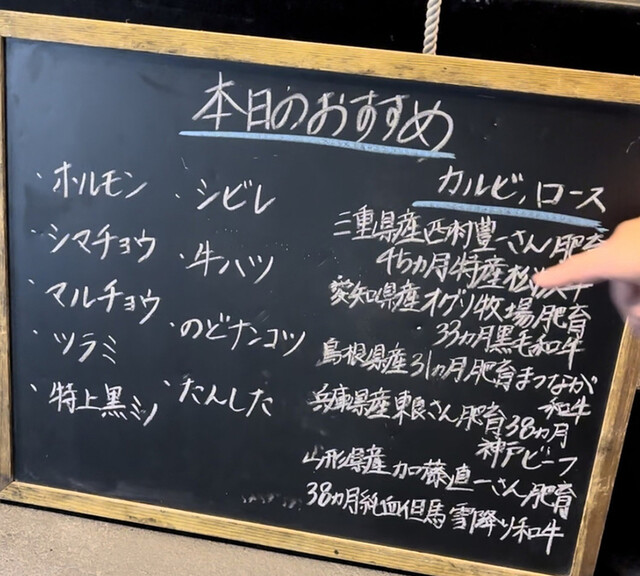 本日のおすすめ
・ホルモン
・シマチョウ
・マルチョウ
・ツラミ
・特上黒ミノ
・シビレ
・牛ハツ
・のどナンコツ
・たんした
カルビ、ロース
三重県産西村豊一さん肥育
45カ月特産松
愛知県産オグリ牧場肥育
33カ月黒毛和牛
島根県産31カ月肥育まつなが
和牛
兵庫県産東良さん肥育38カ月
神戸ビーフ
山形県産加藤直一さん肥育
38カ月純血但馬雪降り和牛